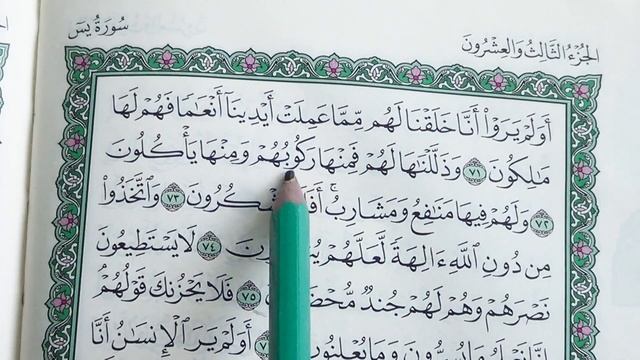 سُورَةُ يسٓ
الجُزْءُ الثَّالِثُ وَالعِشْرُونَ
أَوَلَمْ يَرَوْا۟ أَنَّا خَلَقْنَا لَهُم مِّمَّا عَمِلَتْ أَيْدِينَآ أَنْعَـٰمًا فَهُمْ لَهَا
مَـٰلِكُونَ ٧١ وَذَلَّلْنَـٰهَا لَهُمْ فَمِنْهَا رَكُوبُهُمْ وَمِنْهَا يَأْكُلُونَ
٧٢ وَلَهُمْ فِيهَا مَنَـٰفِعُ وَمَشَارِبُ ۖ شْكُرُونَ ٧٣ وَٱتَّخَذُوا۟
مِن دُونِ ٱللَّهِ ءَالِهَةً لَّعَلَّهُمْ ٧٤ لَا يَسْتَطِيعُونَ
نَصْرَهُمْ وَهُمْ لَهُمْ جُندٌ ٧٥ فَلَا يَحْزُنكَ قَوْلُهُمْ
وَمَا يُعْلِنُونَ أَوَلَمْ يَرَ ٱلْإِنسَـٰنُ أَنَّا